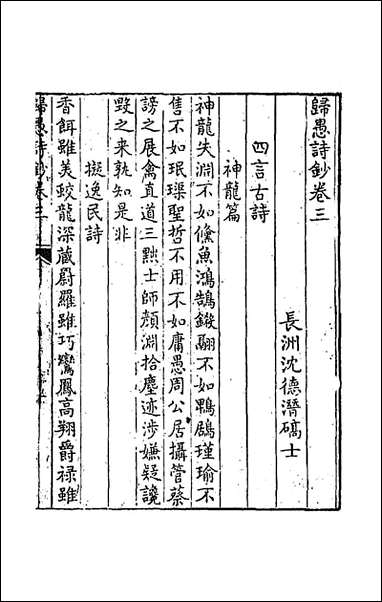 歸愚詩鈔卷三
長洲沈德潛碻士
四言古詩
神龍篇
神龍失淵不如鯈魚鴻鵠鎩翮不如鶤鶋瑾瑜不
售不如珉璖聖哲不用不如庸愚周公居攝管蔡
謗之展禽直道三黜士師顏淵拾塵迹涉嫌疑讒
毀之来孰知是非
擬逸民詩
香餌雖美蛟龍深蔵尉羅雖巧鸞鳳高翔爵禄雖
歸愚詩鈔卷三